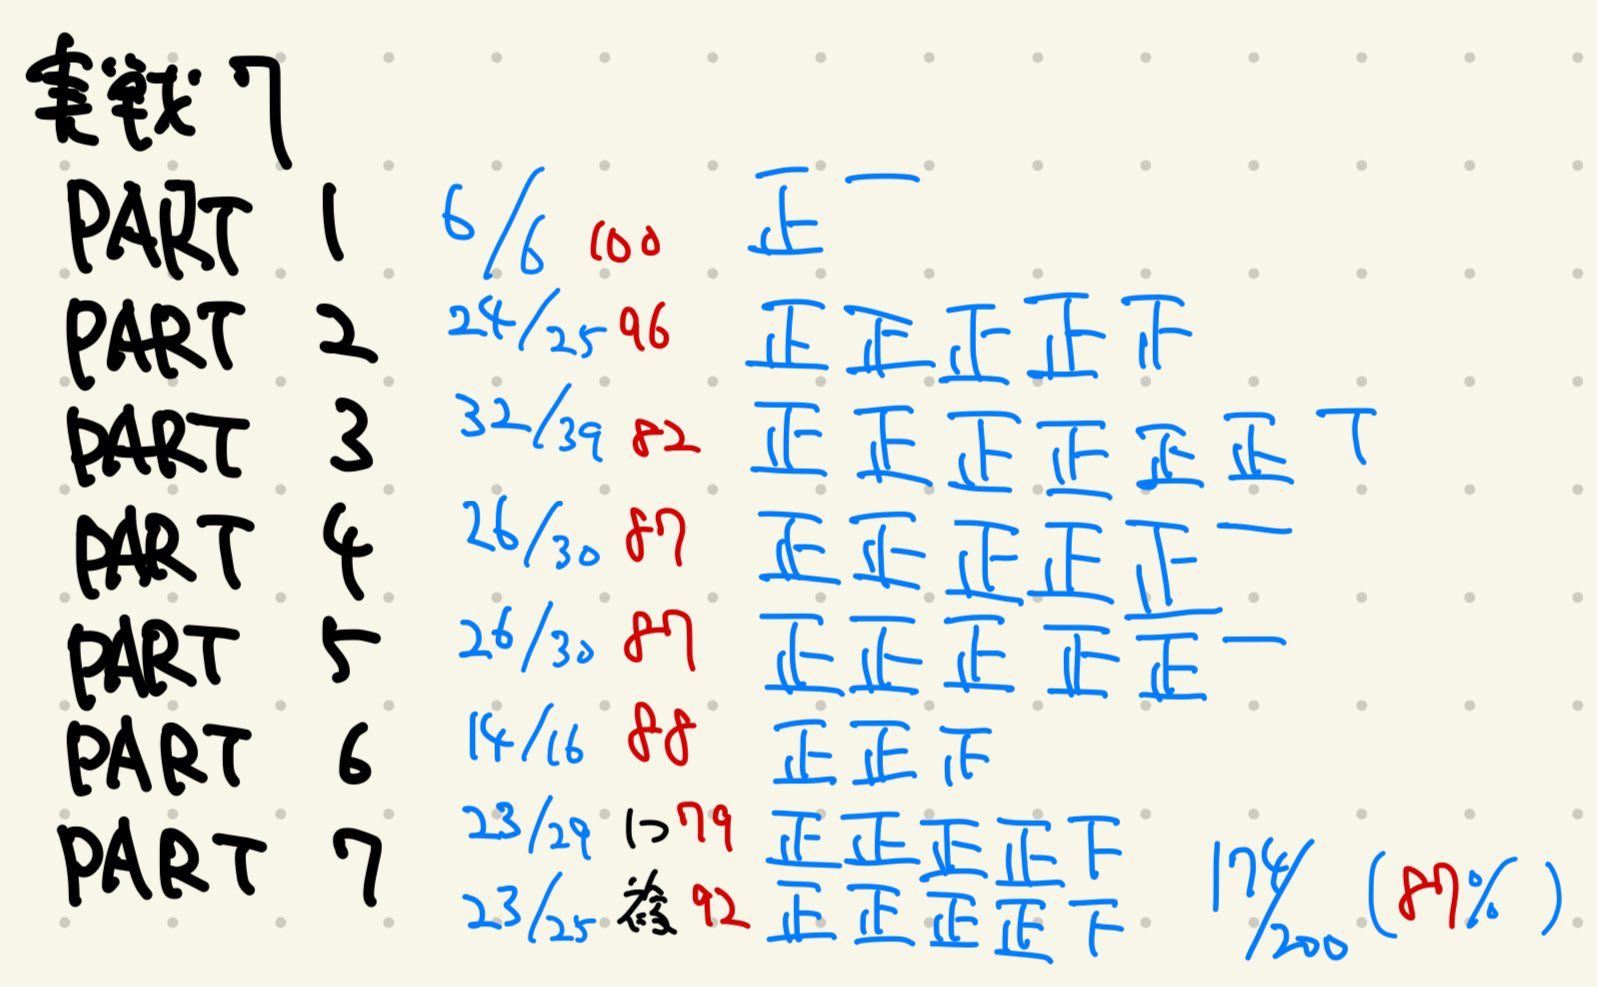 実戦 7
PART 1 6/6 100 正一
PART 2 24/25 96 正正正正
PART 3 32/39 82 正正正正正正T
PART 4 26/30 87 正正正正正一
PART 5 26/30 87 正正正正正一
PART 6 14/16 88 正正
PART 7 23/29 1つ 79 正正正正下
23/25 複 92 正正正正下 174/200 (87%)